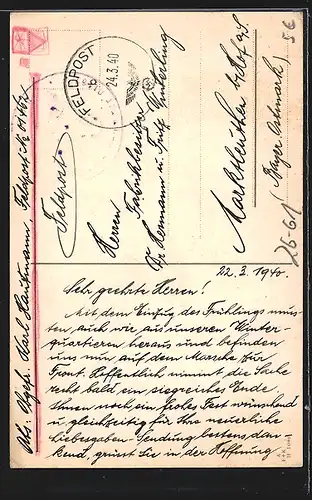 Abs. Ogefr. Karl Hautmann, Feldpost №
FELDPOST
24.3.40
Feldpost.
Herren
Fabrikbesitzer
Dr Hermann u. Fritz Winterling
Marktleuthen
(Bayer. Ostmark)
5€
26-61
22. 3. 1940.
Sehr geehrte Herren!
Mit dem Einzug des Frühlings mus-
sten auch wir aus unseren Winter-
quartieren heraus und befinden
uns nun auf dem Marsche zur
Front. Hoffentlich nimmt die Sache
recht bald ein siegreiches Ende.
Ihnen noch ein frohes Fest wünschend
u. gleichzeitig für Ihre neuerliche
Liebesgaben-Sendung bestens dan-
kend, grüsst Sie in der Hoffnung